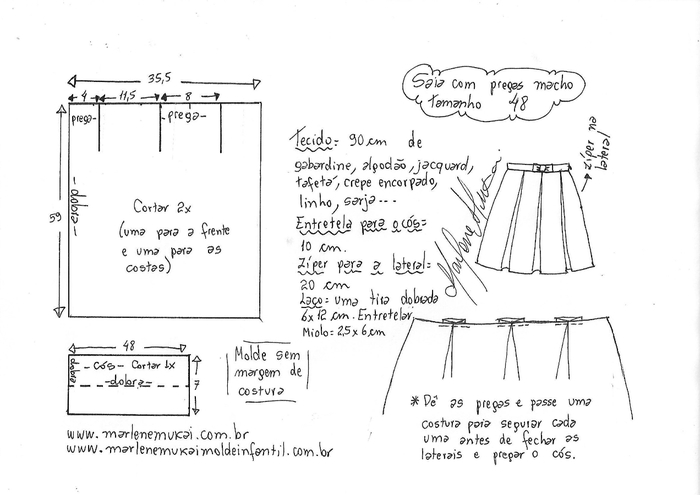 35,5
4 11,5 8
prega- -prega-
59
-dobra-
Cortar 2x
(uma para a frente
e uma para as
costas)
48
dobra
- Cós - Cortar 1x
-dobra-
7
Molde sem
margem de
costura
www.marlenemukai.com.br
www.marlenemukaimoldeinfantil.com.br
Saia com pregas macho
tamanho 48
Tecido = 90 cm de
gabardine, algodão, jacquard,
tafetá, crepe encorpado,
linho, sarja...
Entretela para o cós=
10 cm.
Zíper para a lateral=
20 cm
Laço= uma tira dobrada
6x12 cm. Entretelar.
Miolo= 2,5 x 6 cm
Marlene Mukai
zíper na
lateral
* Dê as pregas e passe uma
costura para segurar cada
uma antes de fechar as
laterais e pregar o cós.